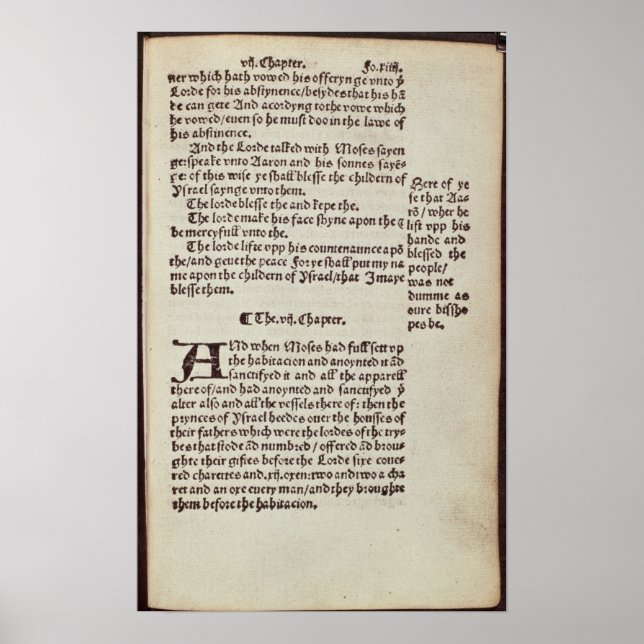 vij. Chapter. Fo. xiiij.
ner which hath vowed his offerynge vnto ẏ
Lorde for his abstynence/besydes that his hā
de can gete And acordyng to the vowe which
he vowed/even so he must doo in the lawe of
his abstinence.
And the Lorde talked with Moses sayen
ge: speake vnto Aaron and his sonnes sayē-
ge: of this wise ye shall blesse the childern of
Ysrael saynge vnto them.
The lorde blesse the and kepe the.
The lorde make his face shyne apon the &
be mercyfull vnto the.
The lorde lifte vpp his countenaunce apō
the/and geue the peace For ye shall put my na
me apon the childern of Ysrael/that I maye
blesse them.
Here of ye
se that Aa-
rō/wher he
lift vpp his
hande and
blessed the
people/
was not
dumme as
oure bissho
pes be.
¶ The .vij. Chapter.
AND when Moses had full sett vp
the habitacion and anoynted it ād
sanctifyed it and all the apparell
there of/and had anoynted and sanctifyed ẏ
alter also and all the vessels there of: then the
prynces of Ysrael heedes ouer the housses of
their fathers which were the lordes of the try-
bes that stode ād numbred/offered ād brou-
ghte their giftes before the Lorde sixe coue-
red charettes and .xij. oxen: two and two a cha
ret and an oxe euery man/and they broughte
them before the habitacion.